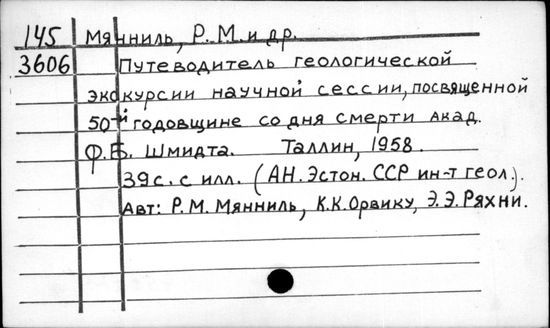 145 Мянниль, Р.М. и др.
3606 Путеводитель геологической
экскурсии научной сессии, посвященной
50-й годовщине со дня смерти акад.
Ф.Б. Шмидта. Таллин, 1958.
39с. с илл. (АН. Эстон. ССР ин-т геол.).
Авт: Р.М. Мянниль, К.К. Орвику, Э.Э. Ряхни.